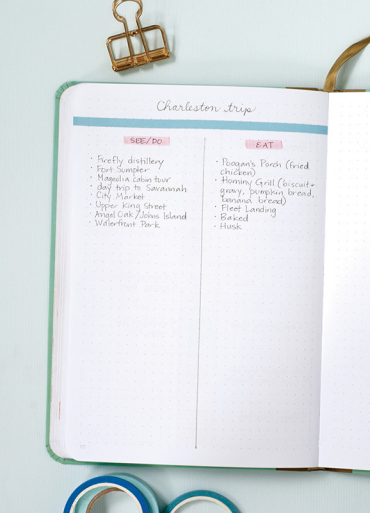 Charleston trip
SEE/DO
· Firefly distillery
· Fort Sumpter
· Magnolia cabin tour
· day trip to Savannah
· City Market
· Upper King Street
· Angel Oak/Johns Island
· Waterfront Park
EAT
· Poogan's Porch (fried
chicken)
· Hominy Grill (biscuit+
gravy, pumpkin bread,
banana bread)
· Fleet Landing
· Baked
· Husk